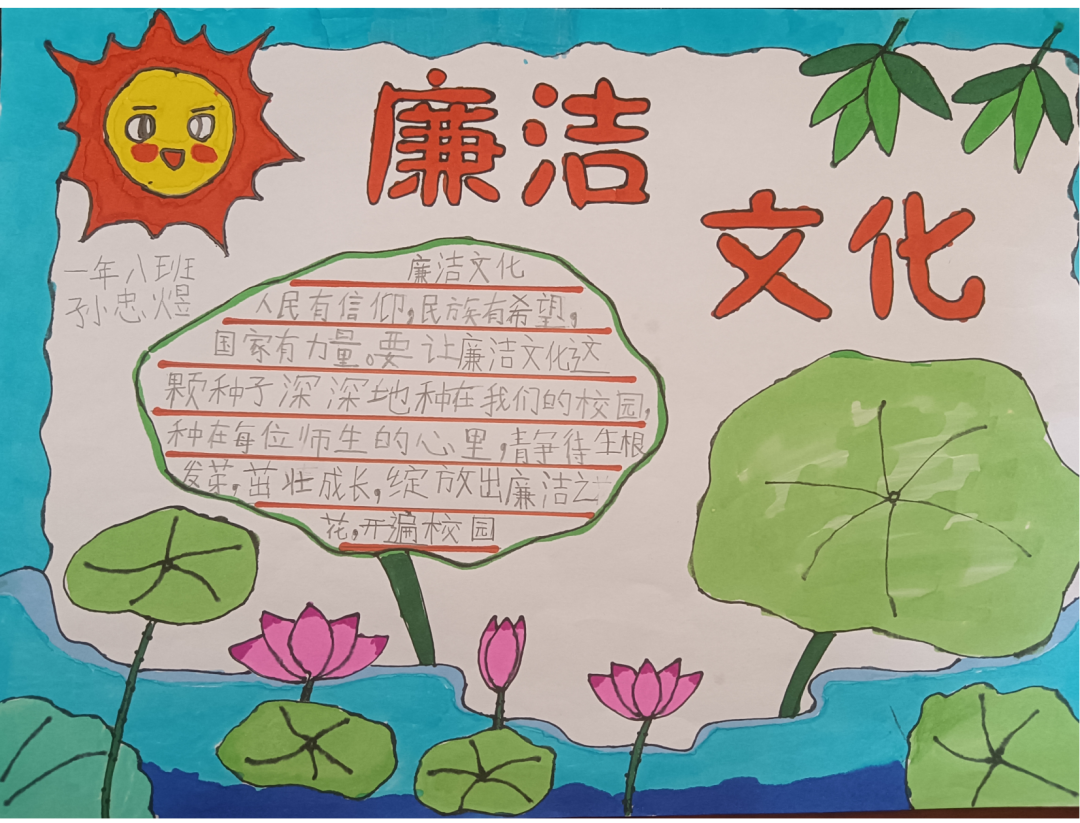 廉洁
文化
一年八班
孙忠煜
廉洁文化
人民有信仰,民族有希望,
国家有力量。要让廉洁文化这
颗种子深深地种在我们的校园,
种在每位师生的心里,静待生根
发芽,茁壮成长,绽放出廉洁之
花,开遍校园